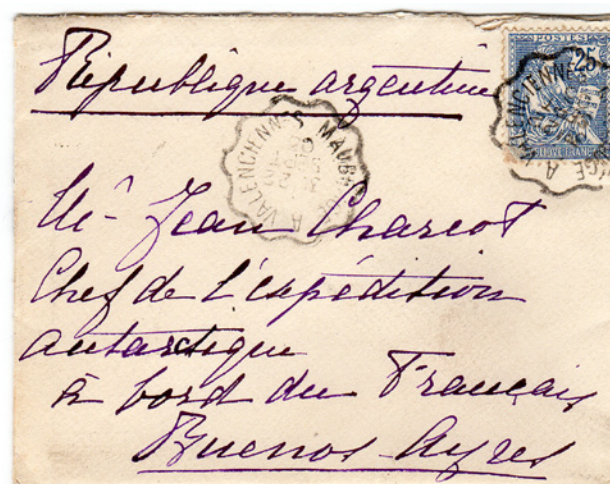 République argentine
POSTES
25
MAUBEUGE A VALENCIENNES
Mr Jean Charcot
Chef de l'expédition
antarctique
à bord du Français
Buenos-Ayres